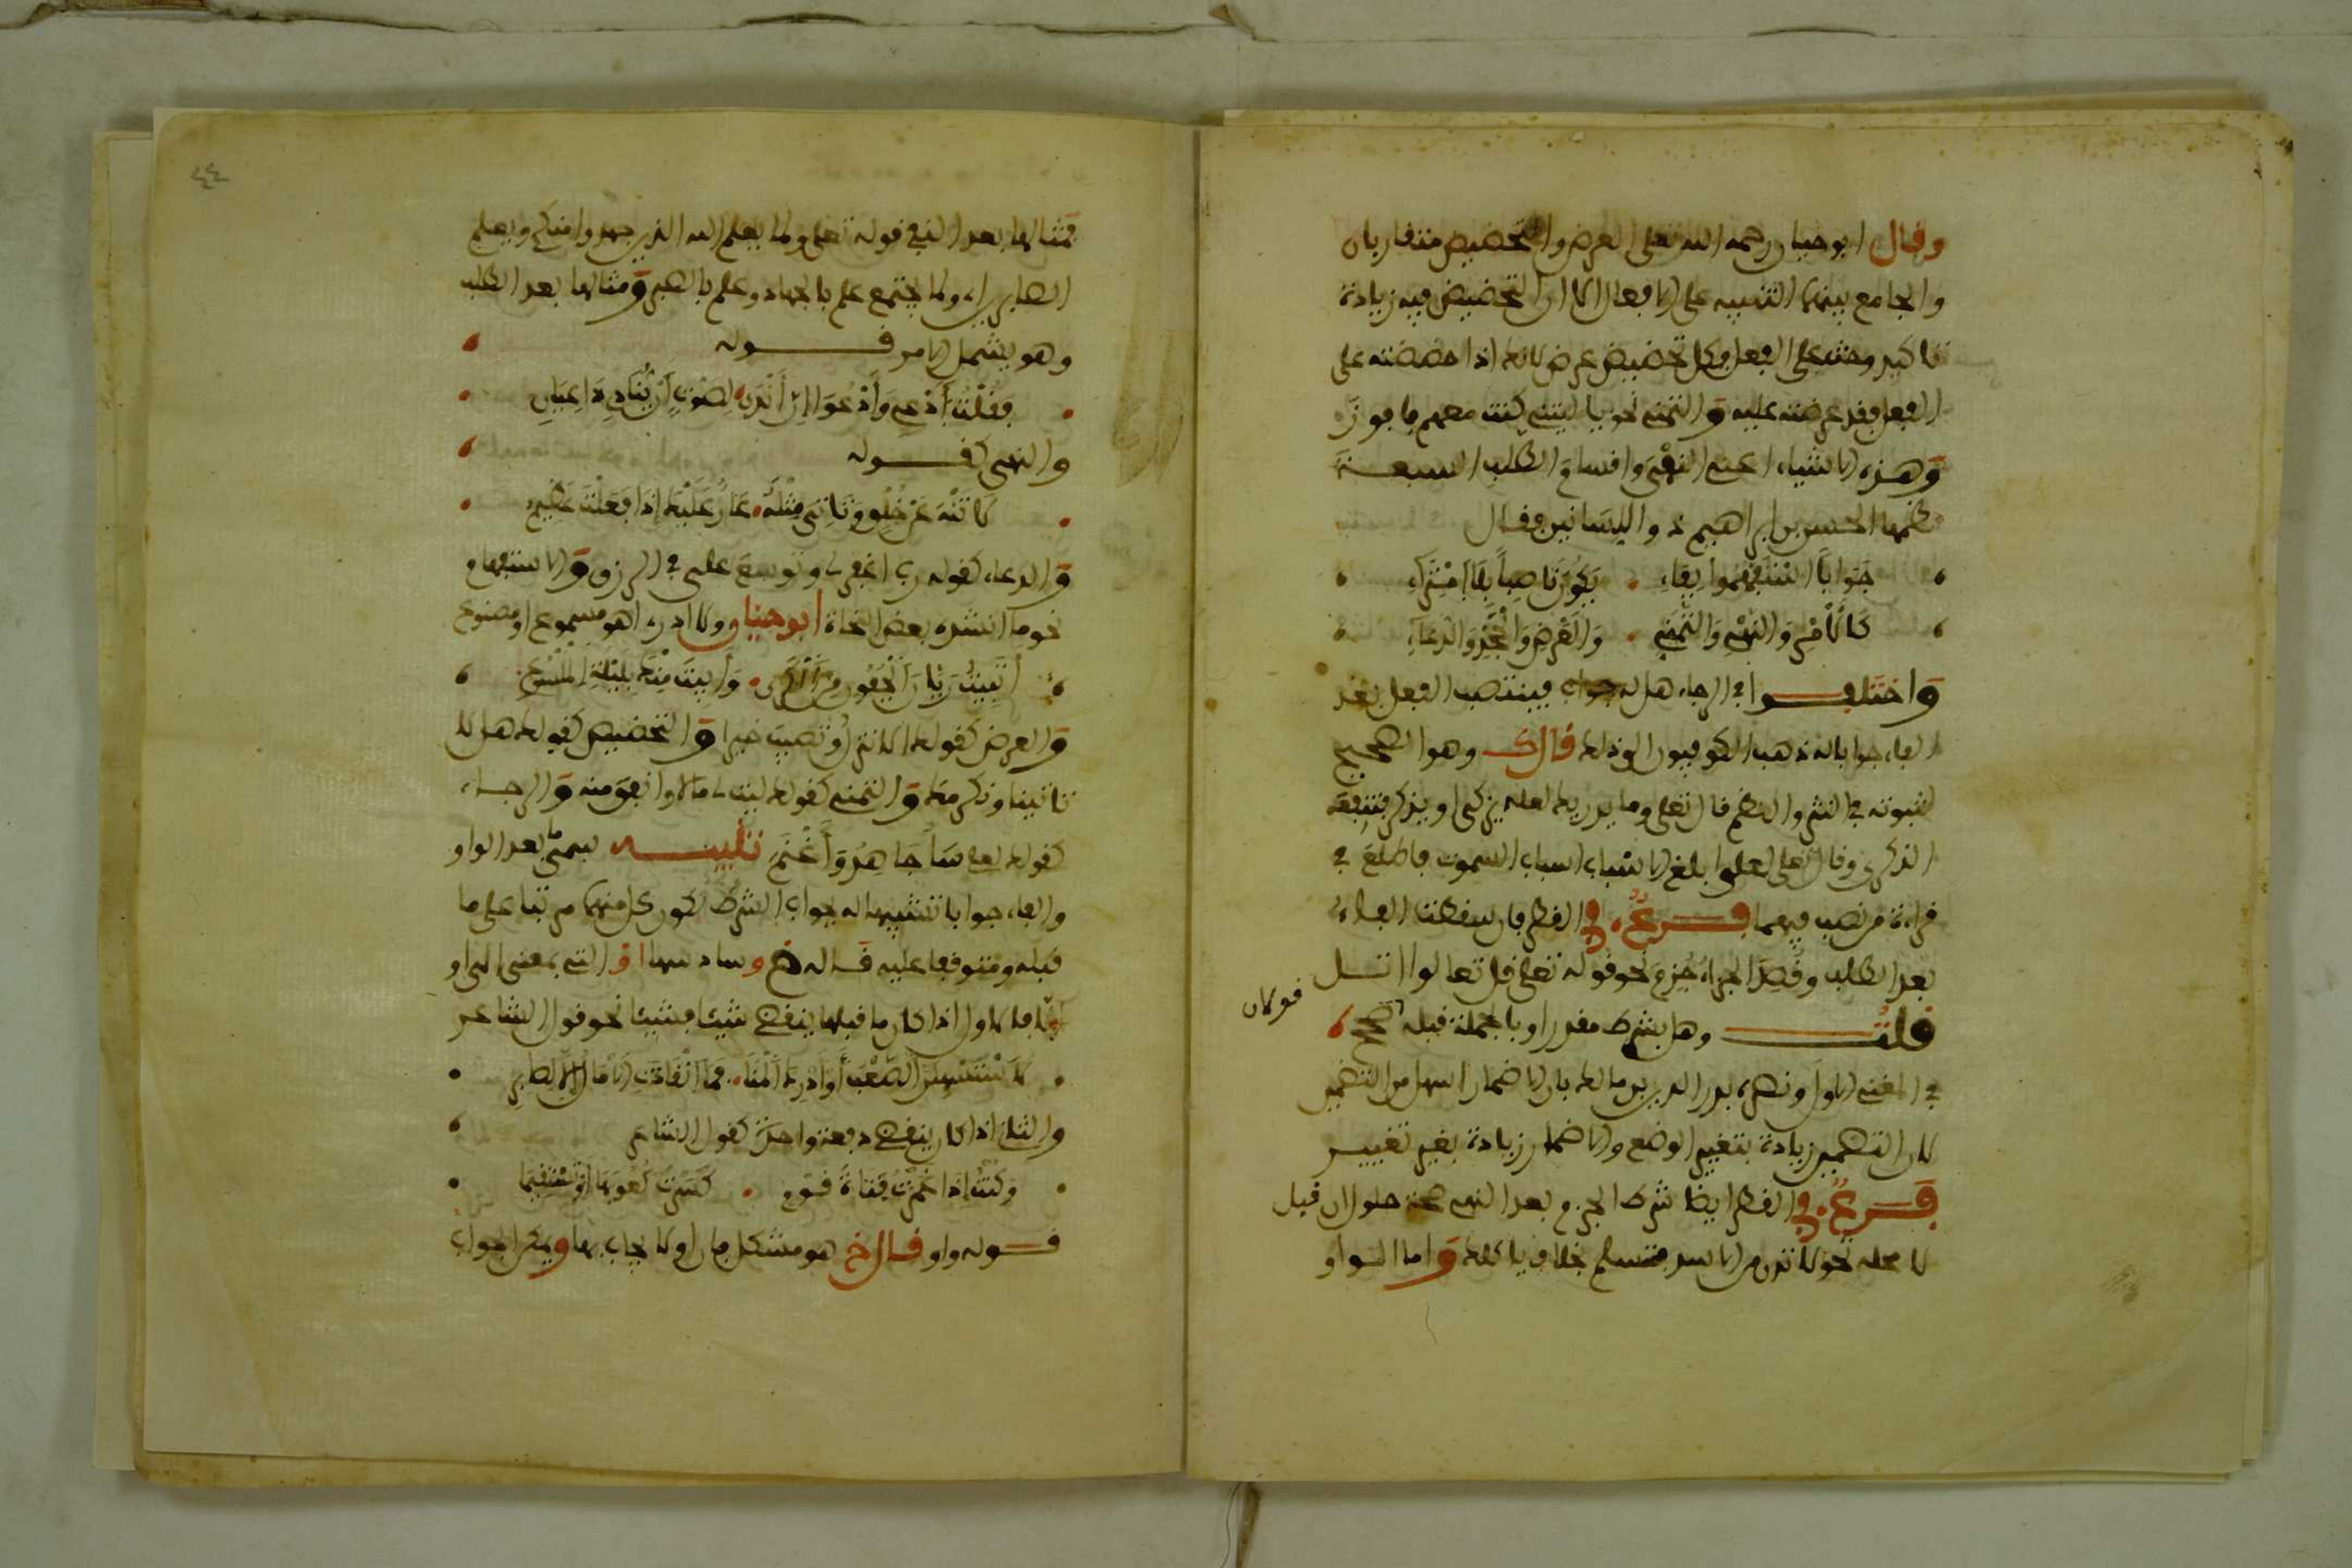 وقال ابو حيان رحمه الله تعلى العرض والتحضيض متقاربان
والجامع بينهما التنبيه على الافعال الا ان التحضيض فيه زيادة
تاكيد وحث على الفعل وكل تحضيض عرض لانك اذا حضضته على
الفعل فقد عرضته عليه والتمني نحو يا ليتني كنت معهم فافوز
وهذه الاشياء اعني النفي واقسام الطلب السبعة
نظمها الحسن بن ابراهيم ذو اللسانين فقال
جوابا استفهموا بفاء يكون ناصبا بلا امتراء
كالامر والنهي والتمني والعرض والجحد والدعاء
واختلفوا في الرجاء هل له جواب فينتصب الفعل بعد
الفاء جوابا له ذهب الكوفيون الى ذلك قال ك وهو الصحيح
لثبوته في النثر والنظم قال تعلى وما يدريك لعله يزكى او يذكر فتنفعه
الذكرى وقال تعلى لعلي ابلغ الاسباب اسباب السموت فاطلع في
قراءة من نصب فيهما فرع وفي القطر فان سقطت الفاء
بعد الطلب وقصد الجزاء جزم نحو قوله تعلى قل تعالوا اتل
قلت وهل بشرط مقدر او بالجملة قبله صحح
قولان
في المغني الاول ونصره بدر الدين بن مالك بان الاضمار اسهل من التضمين
لان التضمين زيادة بتغيير الوضع والاضمار زيادة بغير تغيير
فرع وفي القطر ايضا شرط الجزم بعد النهي صحة حلول ان قبل
لا محله نحو لا تدن من الاسد فتسلم بخلاف ياكلك واما الواو
٤٤
فمثالها بعد النفي قوله تعلى ولما يعلم الله الذين جهدوا منكم ويعلم
الصابرين اي ولما يجتمع علم بالجهاد وعلم بالصبر ومثالها بعد الطلب
وهو يشمل الامر قوله
فقلت ادعي وادعوا ان اندى لصوت ان ينادي داعيان
والنهي كقوله
لا تنه عن خلق وتاتي مثله عار عليك اذا فعلت عظيم
والدعاء كقوله رب اغفر لي وتوسع علي في الرزق والاستفهام
نحو ما انشده بعض النحاة ابو حيان ولا ادري اهو مسموع او مصنوع
اتبيت ريان الجفون من الكرى وابيت منك بليلة الملسوع
والعرض كقولك الا تنزل وتصيب خيرا والتحضيض كقولك هلا
تاتينا ونكرمك والتمني كقولك ليت لي مالا وانفق منه والرجاء
كقولك لعلي ساجاهد واغنم تنبيه سمي بعد الواو
والفاء جوابا تشبيها له بجواب الشرط لكون كل منهما مرتبا على ما
قبله ومتوقفا عليه قاله خ وسادسها او التي بمعنى الى او
الا فالاول اذا كان ما قبلها ينقضي شيئا فشيئا نحو قول الشاعر
لاستسهلن الصعب او ادرك المنا فما انقادت الامال الا لصابر
والثاني اذا كان ينقضي دفعة واحدة كقول الشاعر
وكنت اذا غمزت قناة قوم كسرت كعوبها او تستقيما
قوله واو قال خ هو مشكل فان او لا يجاب بها ويمكن الجواب